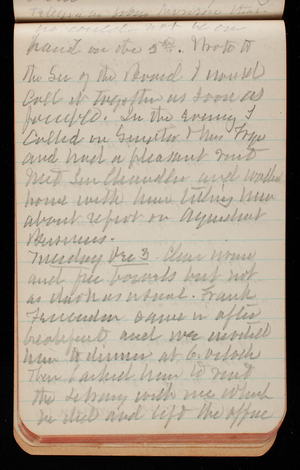 he could not be on
hand on the 5th. Wrote to
the Sec of the Board I would
call it together as soon as
possible. In the evening I
called on Senator & Mrs Frye
and had a pleasant visit
Met Sen Chandler and walked
home with him talking him
about report on
Business.
Tuesday Dec 3 Clear
and but not
as dark as usual. Frank
Fessenden came in after
breakfast and we invited
him to dinner at 6. oclock
Then I asked him to visit
the Library with me which
he did and left the office